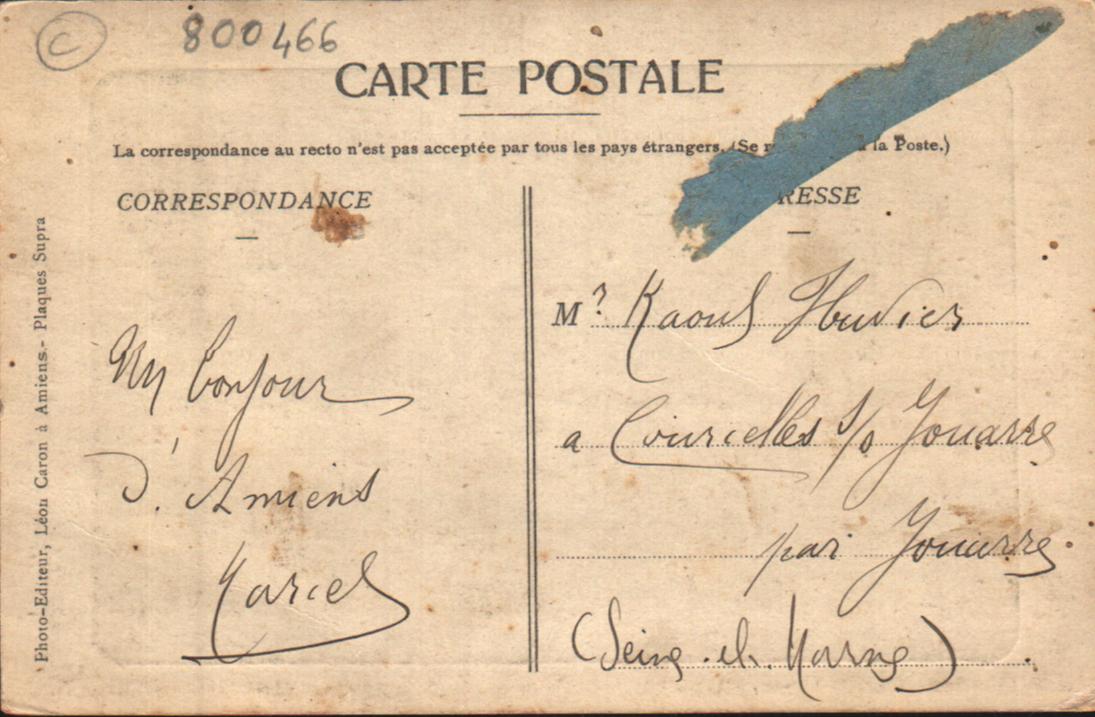 C
800466
CARTE POSTALE
La correspondance au recto n'est pas acceptée par tous les pays étrangers. (Se r à la Poste.)
CORRESPONDANCE
RESSE
Photo-Editeur, Léon Caron à Amiens.- Plaques Supra
Un bonjour
d'Amiens
Marcel
Mr Raoul
a Courcelles s/s Jouarre
par Jouarre
(Seine et Marne)